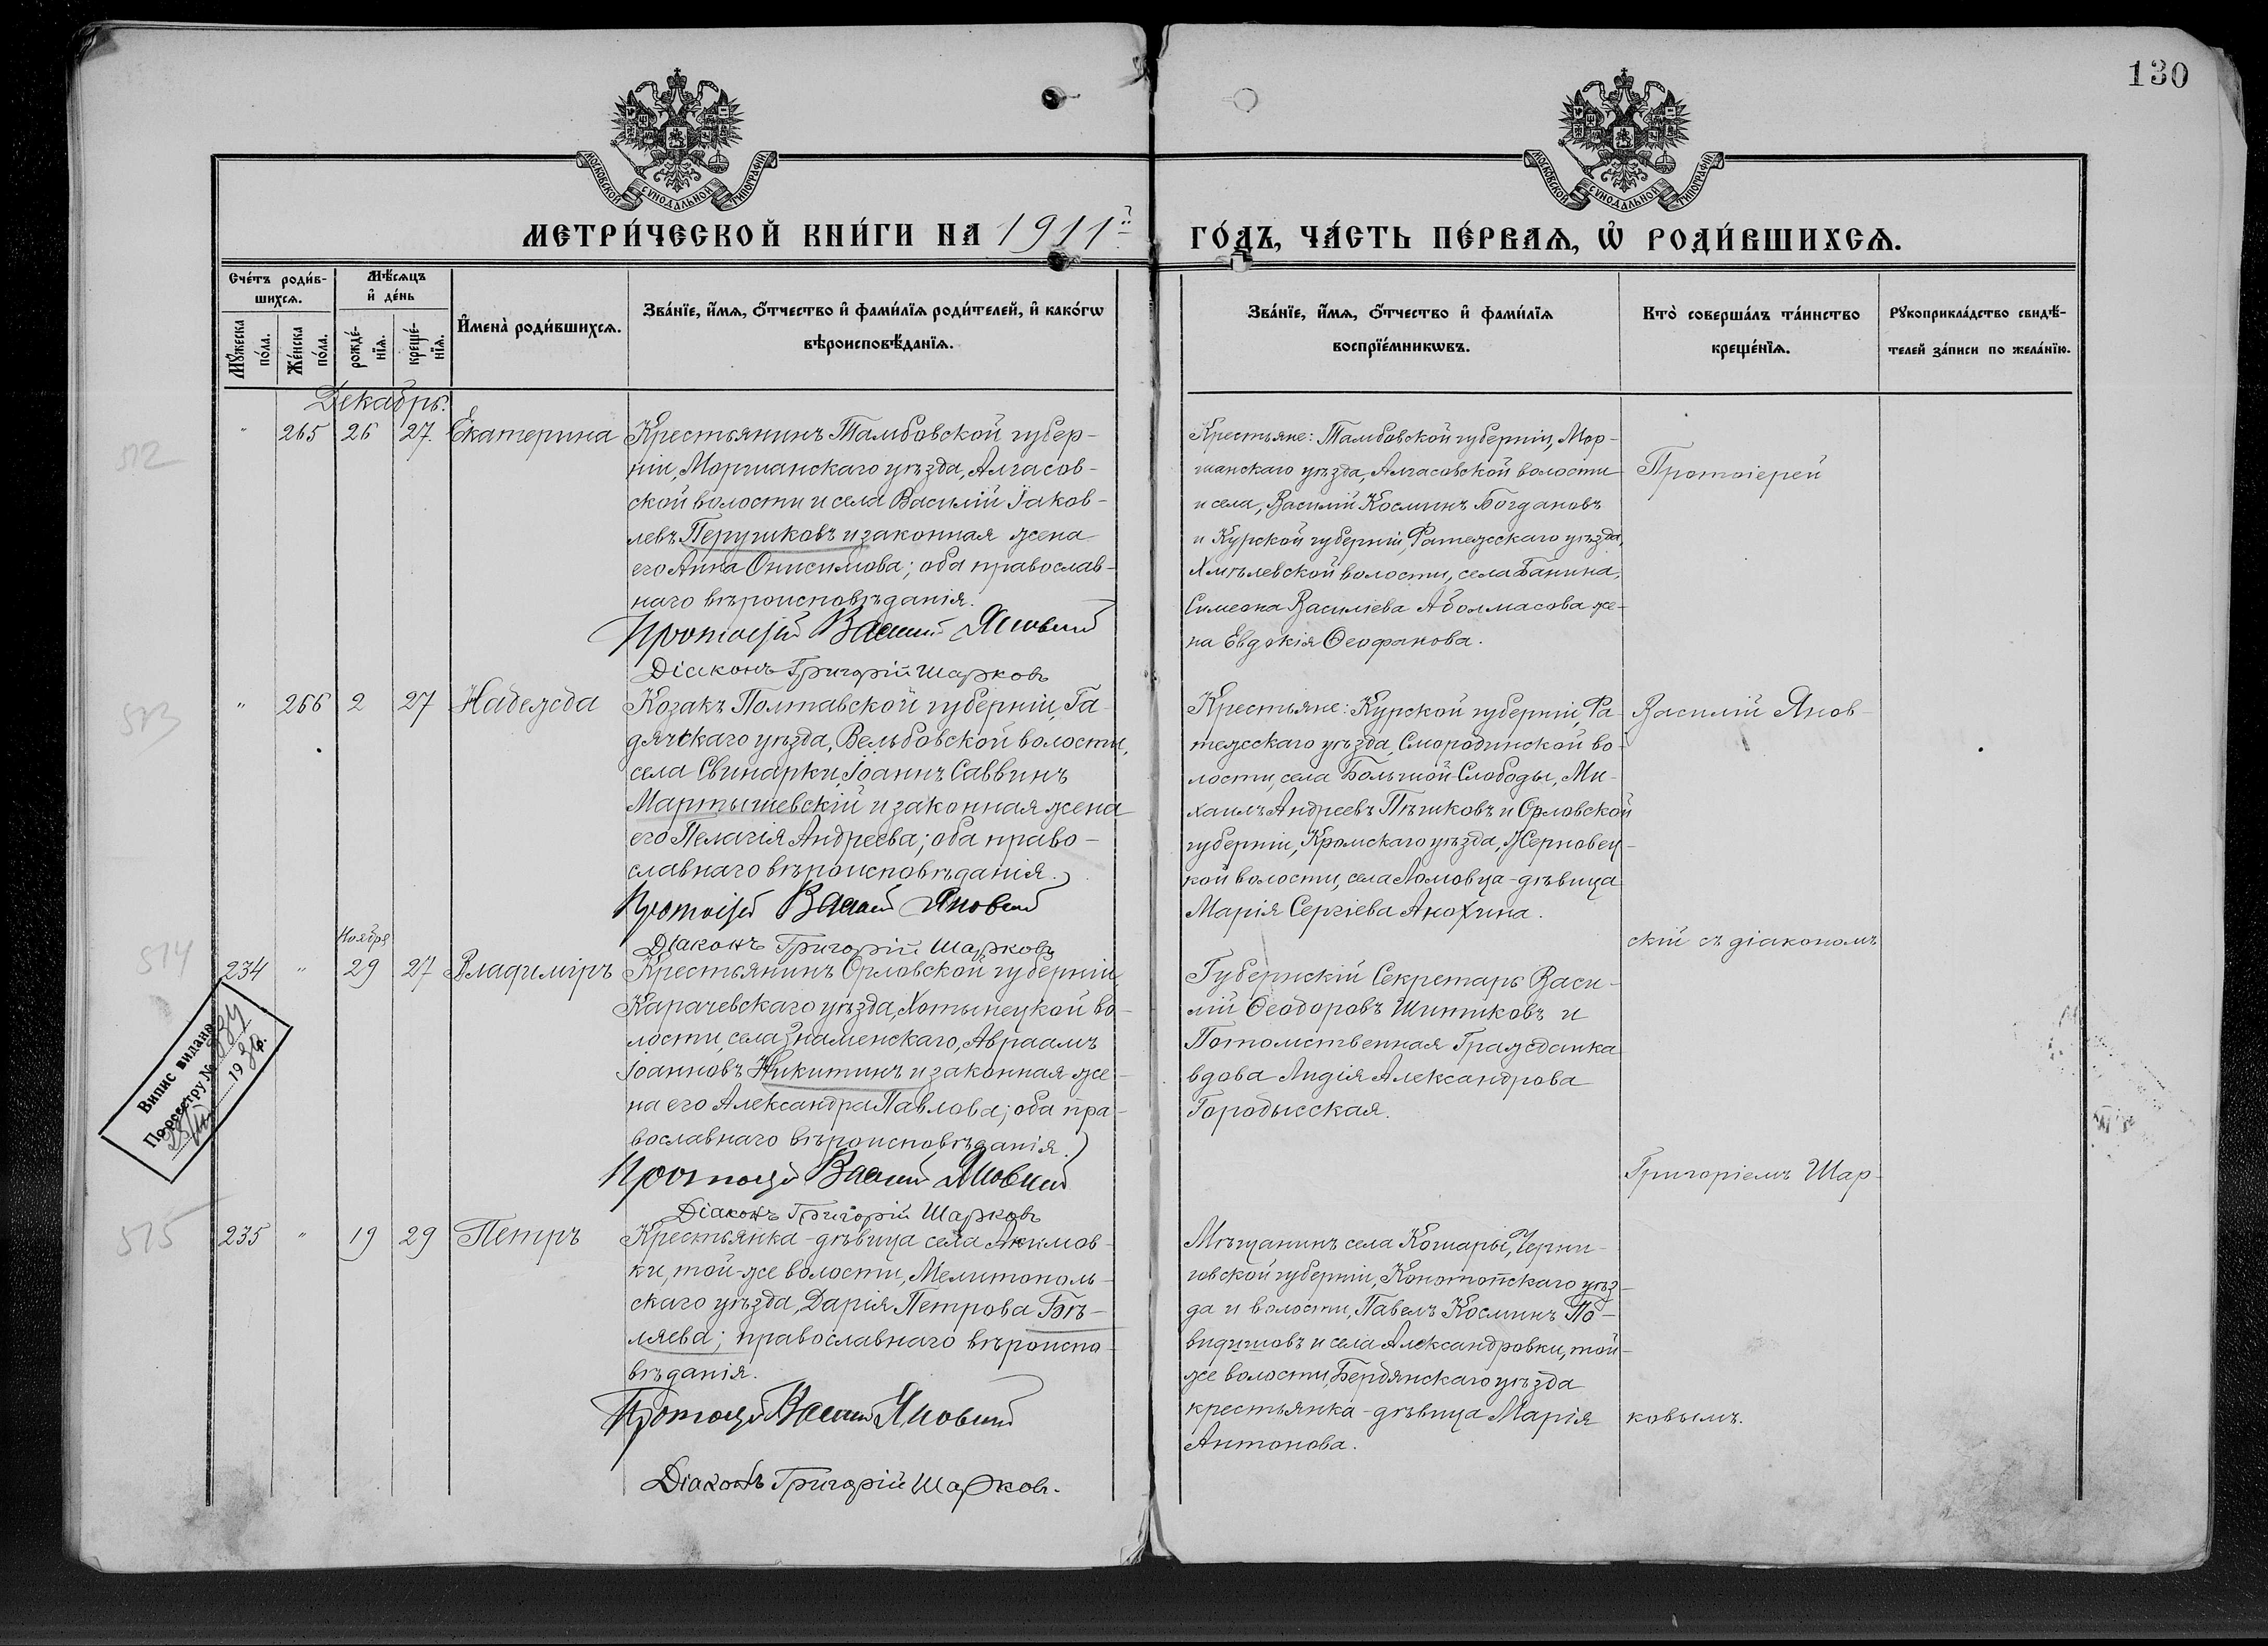 130
МОСКОВСКОЙ СѴНОДАЛЬНОЙ ТИПОГРАФІИ
МОСКОВСКОЙ СѴНОДАЛЬНОЙ ТИПОГРАФІИ
МЕТРИ́ЧЕСКОЙ КНИ́ГИ НА 1911й
ГО́ДЪ, ЧА́СТЬ ПЕ́РВАѦ, Ѡ҆ РОДИ́ВШИХСѦ.
Сче́тъ роди́в-
шихсѧ.
Мѣ́сѧцъ
и҆ де́нь
Мꙋ́жеска
по́ла.
Же́нска
по́ла.
рожде́-
нїѧ.
креще́-
нїѧ.
И҆мена̀ роди́вшихсѧ.
Зва́нїе, и҆́мѧ, ѻ҆́тчество и҆ фами́лїѧ роди́телей, и҆ како́гѡ
вѣроисповѣ́данїѧ.
Зва́нїе, и҆́мѧ, ѻ҆́тчество и҆ фами́лїѧ
воспрїе́мникѡвъ.
Кто̀ соверша́лъ та́инство
креще́нїѧ.
Рꙋкоприкла́дство свидѣ́-
телей за́писи по жела́нїю.
Декабрь.
512
" 265 26 27. Екатерина
Крестьянинъ Тамбовской губер-
ніи, Моршанскаго уѣзда, Алгасов-
ской волости и села Василій Іаков-
левъ Перушковъ и законная жена
его Анна Онисимова; оба православ-
наго вѣроисповѣданія.
Протоіерей Василий Яновский
Діаконъ Григорій Шарковъ
Крестьяне: Тамбовской губерніи, Мор-
шанскаго уѣзда, Алгасовской волости
и села, Василій Косминъ Богдановъ
и Курской губерніи, Фатежскаго уѣзда,
Хмѣлевской волости, села Банина,
Симеона Василіева Аболмасова же-
на Евдокія Ѳеофанова.
Протоіерей
513
" 266 2 27 Надежда
Козакъ Полтавской губерніи, Га-
дячскаго уѣзда, Вельбовской волости,
села Свинарки, Іоаннъ Саввинъ
Мартышевскій и законная жена
его Пелагія Андреева; оба право-
славнаго вѣроисповѣданія.
Протоіерей Василий Яновский
Діаконъ Григорій Шарковъ
Крестьяне: Курской губерніи, Фа-
тежскаго уѣзда, Смородинской во-
лости, села Большой-Слободы, Ми-
хаилъ Андреевъ Пѣшковъ и Орловской
губерніи, Кромскаго уѣзда, Жерновец-
кой волости, села Ломовца-дѣвица
Марія Сергіева Анохина.
Василій Янов-
скій съ діакономъ
514
Ноября
234 " 29 27 Владимиръ
Крестьянинъ Орловской губерніи,
Карачевскаго уѣзда, Хотынецкой во-
лости, села Знаменскаго, Авраамъ
Іоанновъ Никитинъ и законная же-
на его Александра Павлова; оба пра-
вославнаго вѣроисповѣданія.
Протоіерей Василий Яновский
Діаконъ Григорій Шарковъ
Губернскій Секретарь Васи-
лій Ѳеодоровъ Шитиковъ и
Потомственная Гражданка
вдова Лидія Александрова
Городысская.
Випис видана
По реєстру №
19 р.
Григоріемъ Шар-
515
235 " 19 29 Петръ
Крестьянка-дѣвица села Акимов-
ки, той-же волости, Мелитополь-
скаго уѣзда, Дарія Петрова Бѣ-
ляева; православнаго вѣроиспо-
вѣданія.
Протоіерей Василий Яновский
Діаконъ Григорій Шарковъ.
Мѣщанинъ села Кошары, Черни-
говской губерніи, Конотопскаго уѣз-
да и волости, Павелъ Косминъ По-
видишовъ и села Александровки, той-
же волости, Бердянскаго уѣзда
крестьянка-дѣвица Марія
Антонова.
ковымъ.